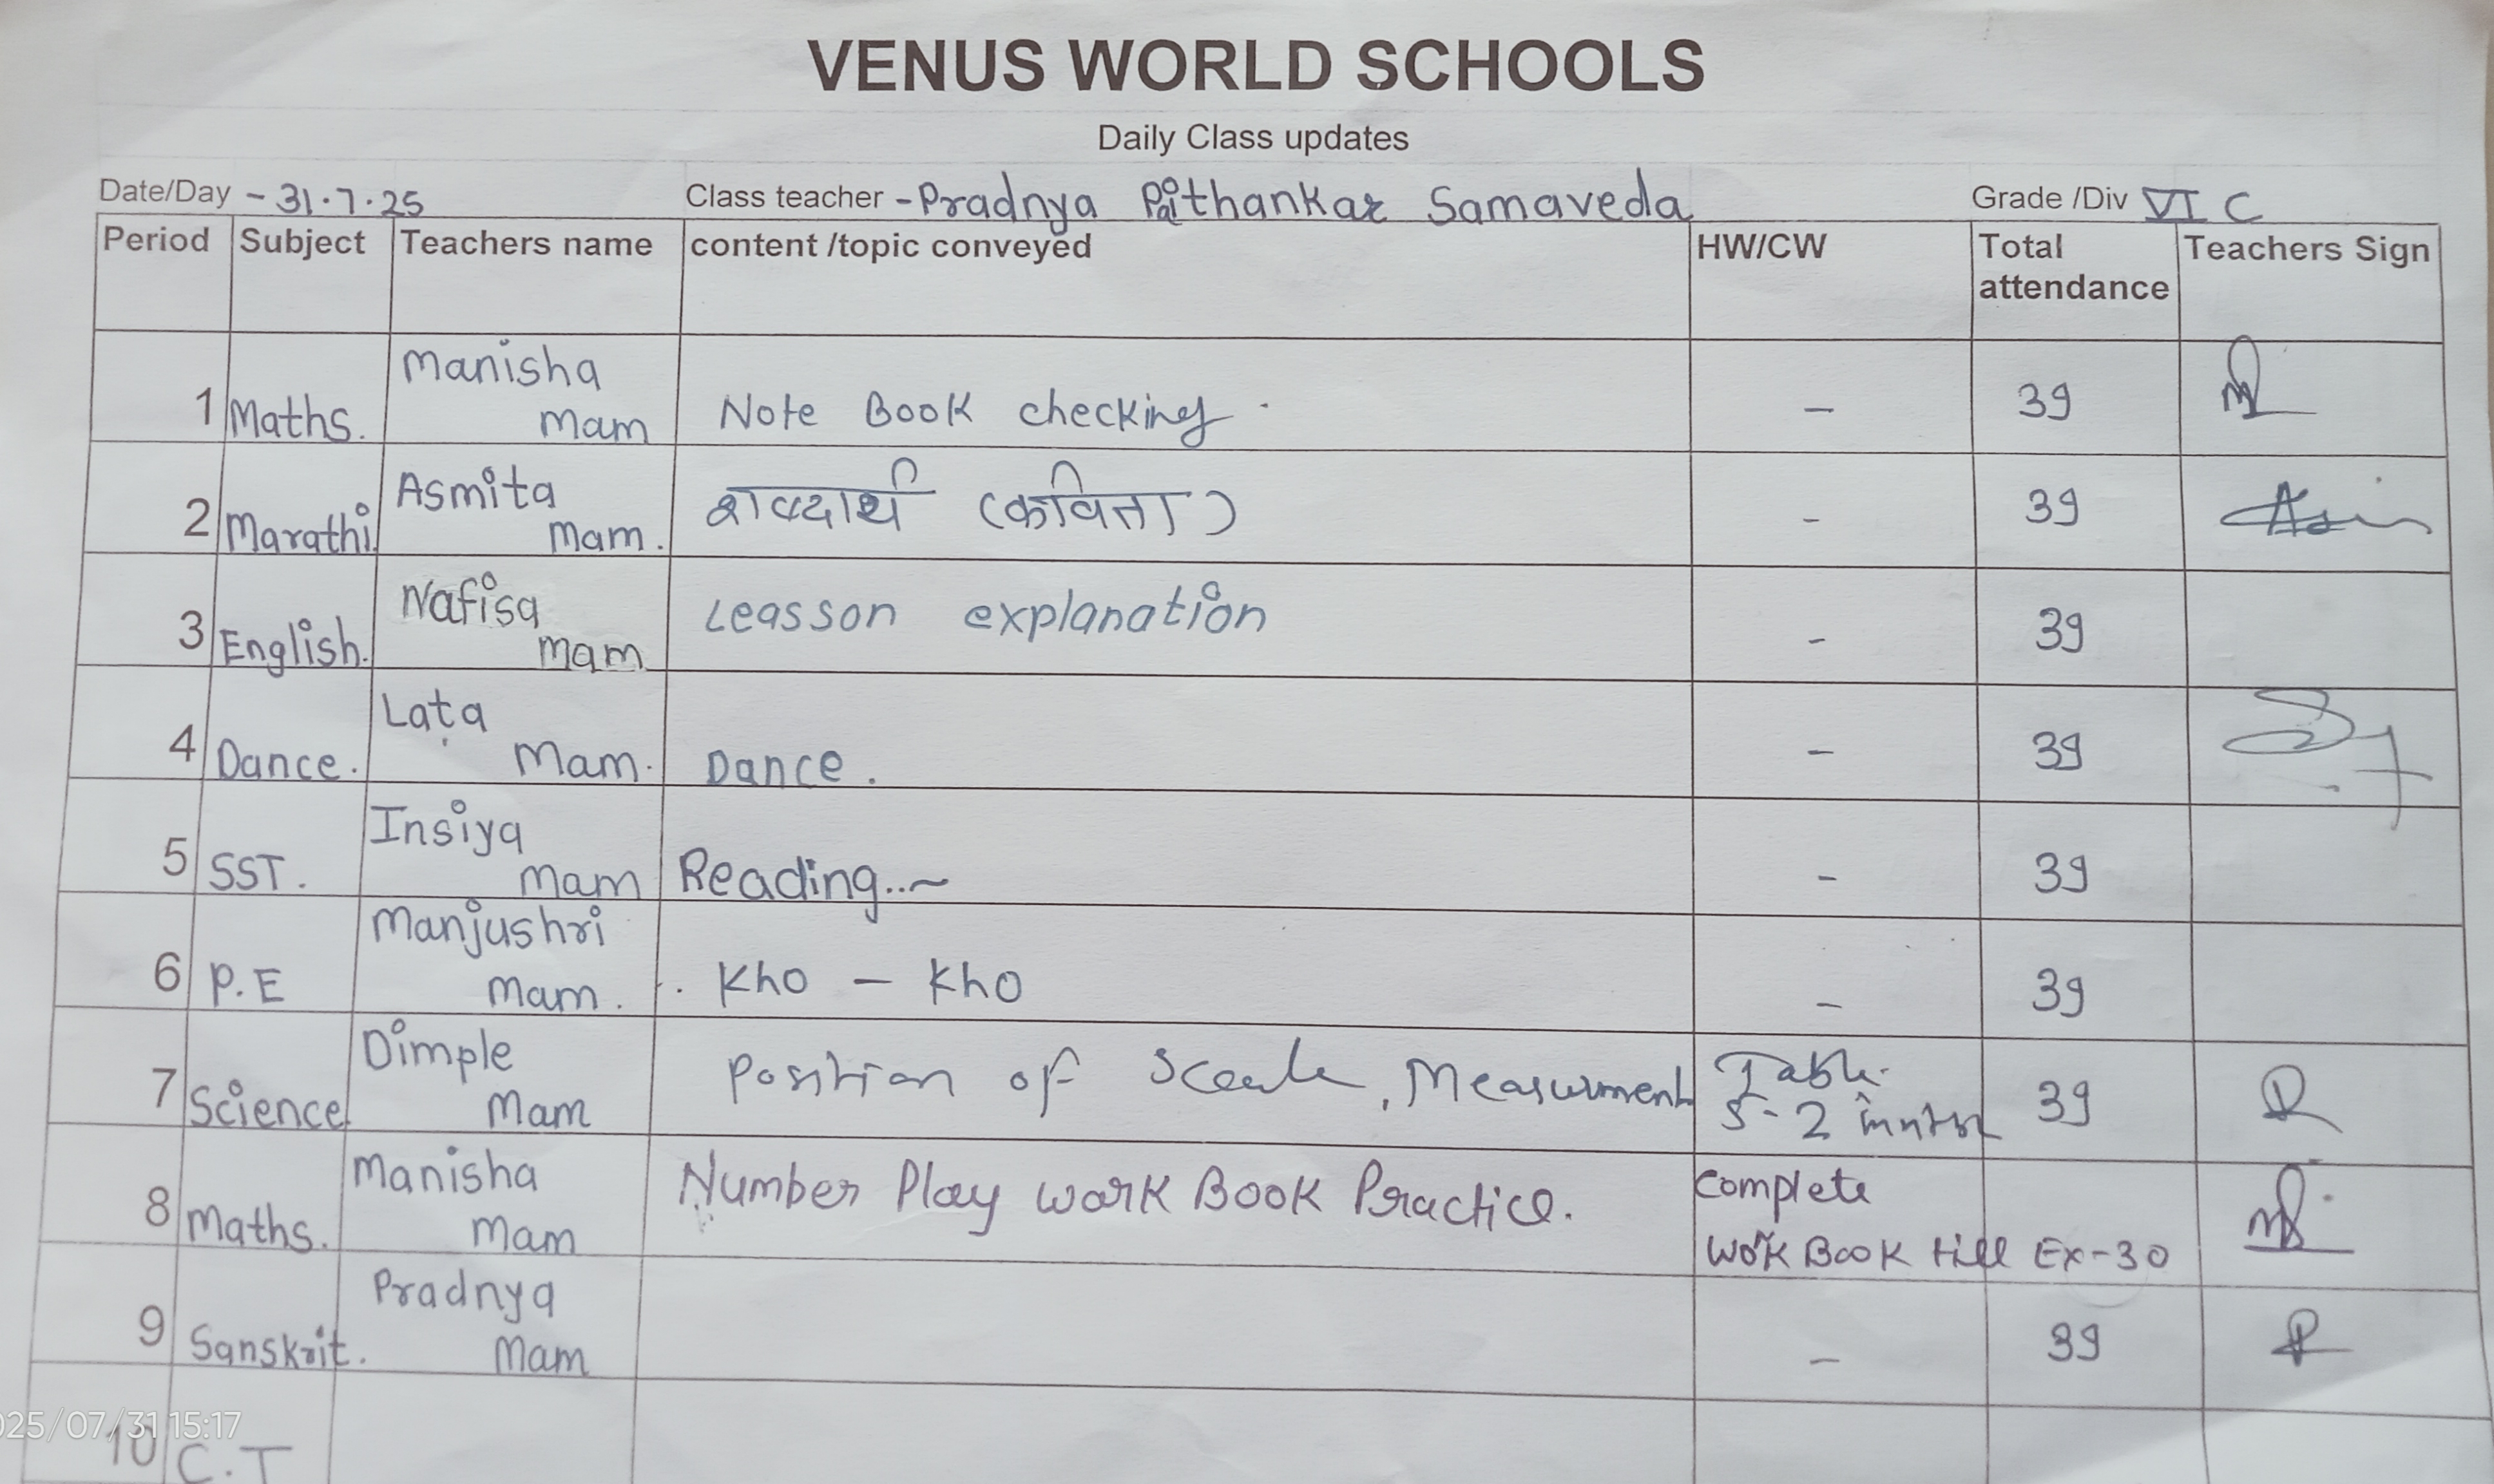 VENUS WORLD SCHOOLS
Daily Class updates
Date/Day - 31.7.25 Class teacher - Pradnya Paithankar Samaveda Grade /Div VI C
Period Subject Teachers name content /topic conveyed HW/CW Total attendance Teachers Sign
1 Maths. Manisha Mam Note Book checking - 39
2 Marathi Asmita Mam. शब्दार्थ (कविता) - 39
3 English. Nafisa Mam Leasson explanation - 39
4 Dance. Lata Mam. Dance. - 39
5 SST. Insiya Mam Reading..~ - 39
6 P.E Manjushri Mam. Kho - Kho - 39
7 Science Dimple Mam Position of Scale, Measurment Table 5-2 39
8 Maths. Manisha Mam Number Play work Book Practice. Complete work Book till Ex-30
9 Sanskrit. Pradnya Mam - 39
10 C.T
025/07/31 15:17